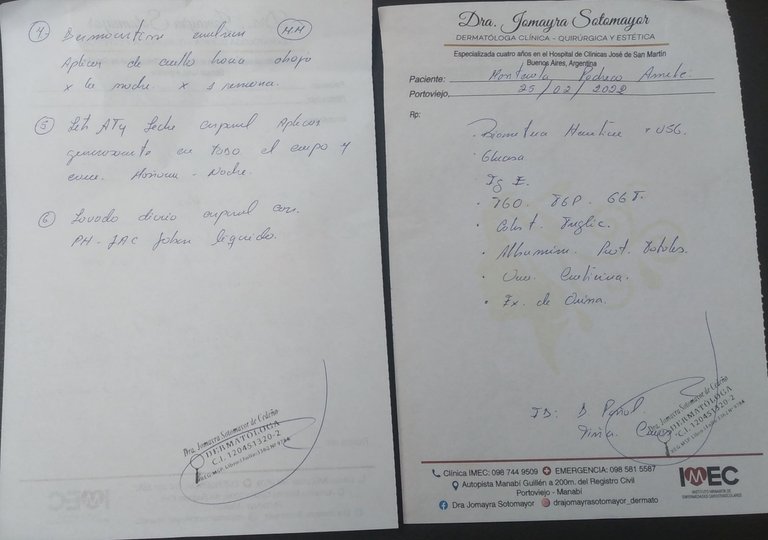 Aplicar de cuello hacia abajo
x la noche. x 1 semana.
⑤ Leti AT4 Leche corporal Aplicar
en TODO el cuerpo y
Mañana - Noche.
⑥ Lavado diario corporal con
PH-LAC Jabon liquido.
Dra. Jomayra Sotomayor de Cedeño
DERMATÓLOGA
C.I. 120451320-2
Dra. Jomayra Sotomayor
DERMATÓLOGA CLÍNICA - QUIRÚRGICA Y ESTÉTICA
Especializada cuatro años en el Hospital de Clínicas José de San Martín
Buenos Aires, Argentina
Paciente: Pacheco
Portoviejo, 25/02/2022
Rp:
· Biometria + VSG.
· Glucosa
· Ig E.
· TGO. TGP. GGT.
· Colest. Triglic.
· Albumina. Prot. Totales.
· Urea. Creatinina.
· Ex. de Orina.
ID: D
Dra. Jomayra Sotomayor de Cedeño
DERMATÓLOGA
C.I. 120451320-2
Clínica IMEC: 098 744 9509 EMERGENCIA: 098 581 5587
Autopista Manabí Guillén a 200m. del Registro Civil
Portoviejo - Manabí
Dra Jomayra Sotomayor drajomayrasotomayor_dermato
IMEC
INSTITUTO MANABITA DE
ENFERMEDADES CARDIOVASCULARES